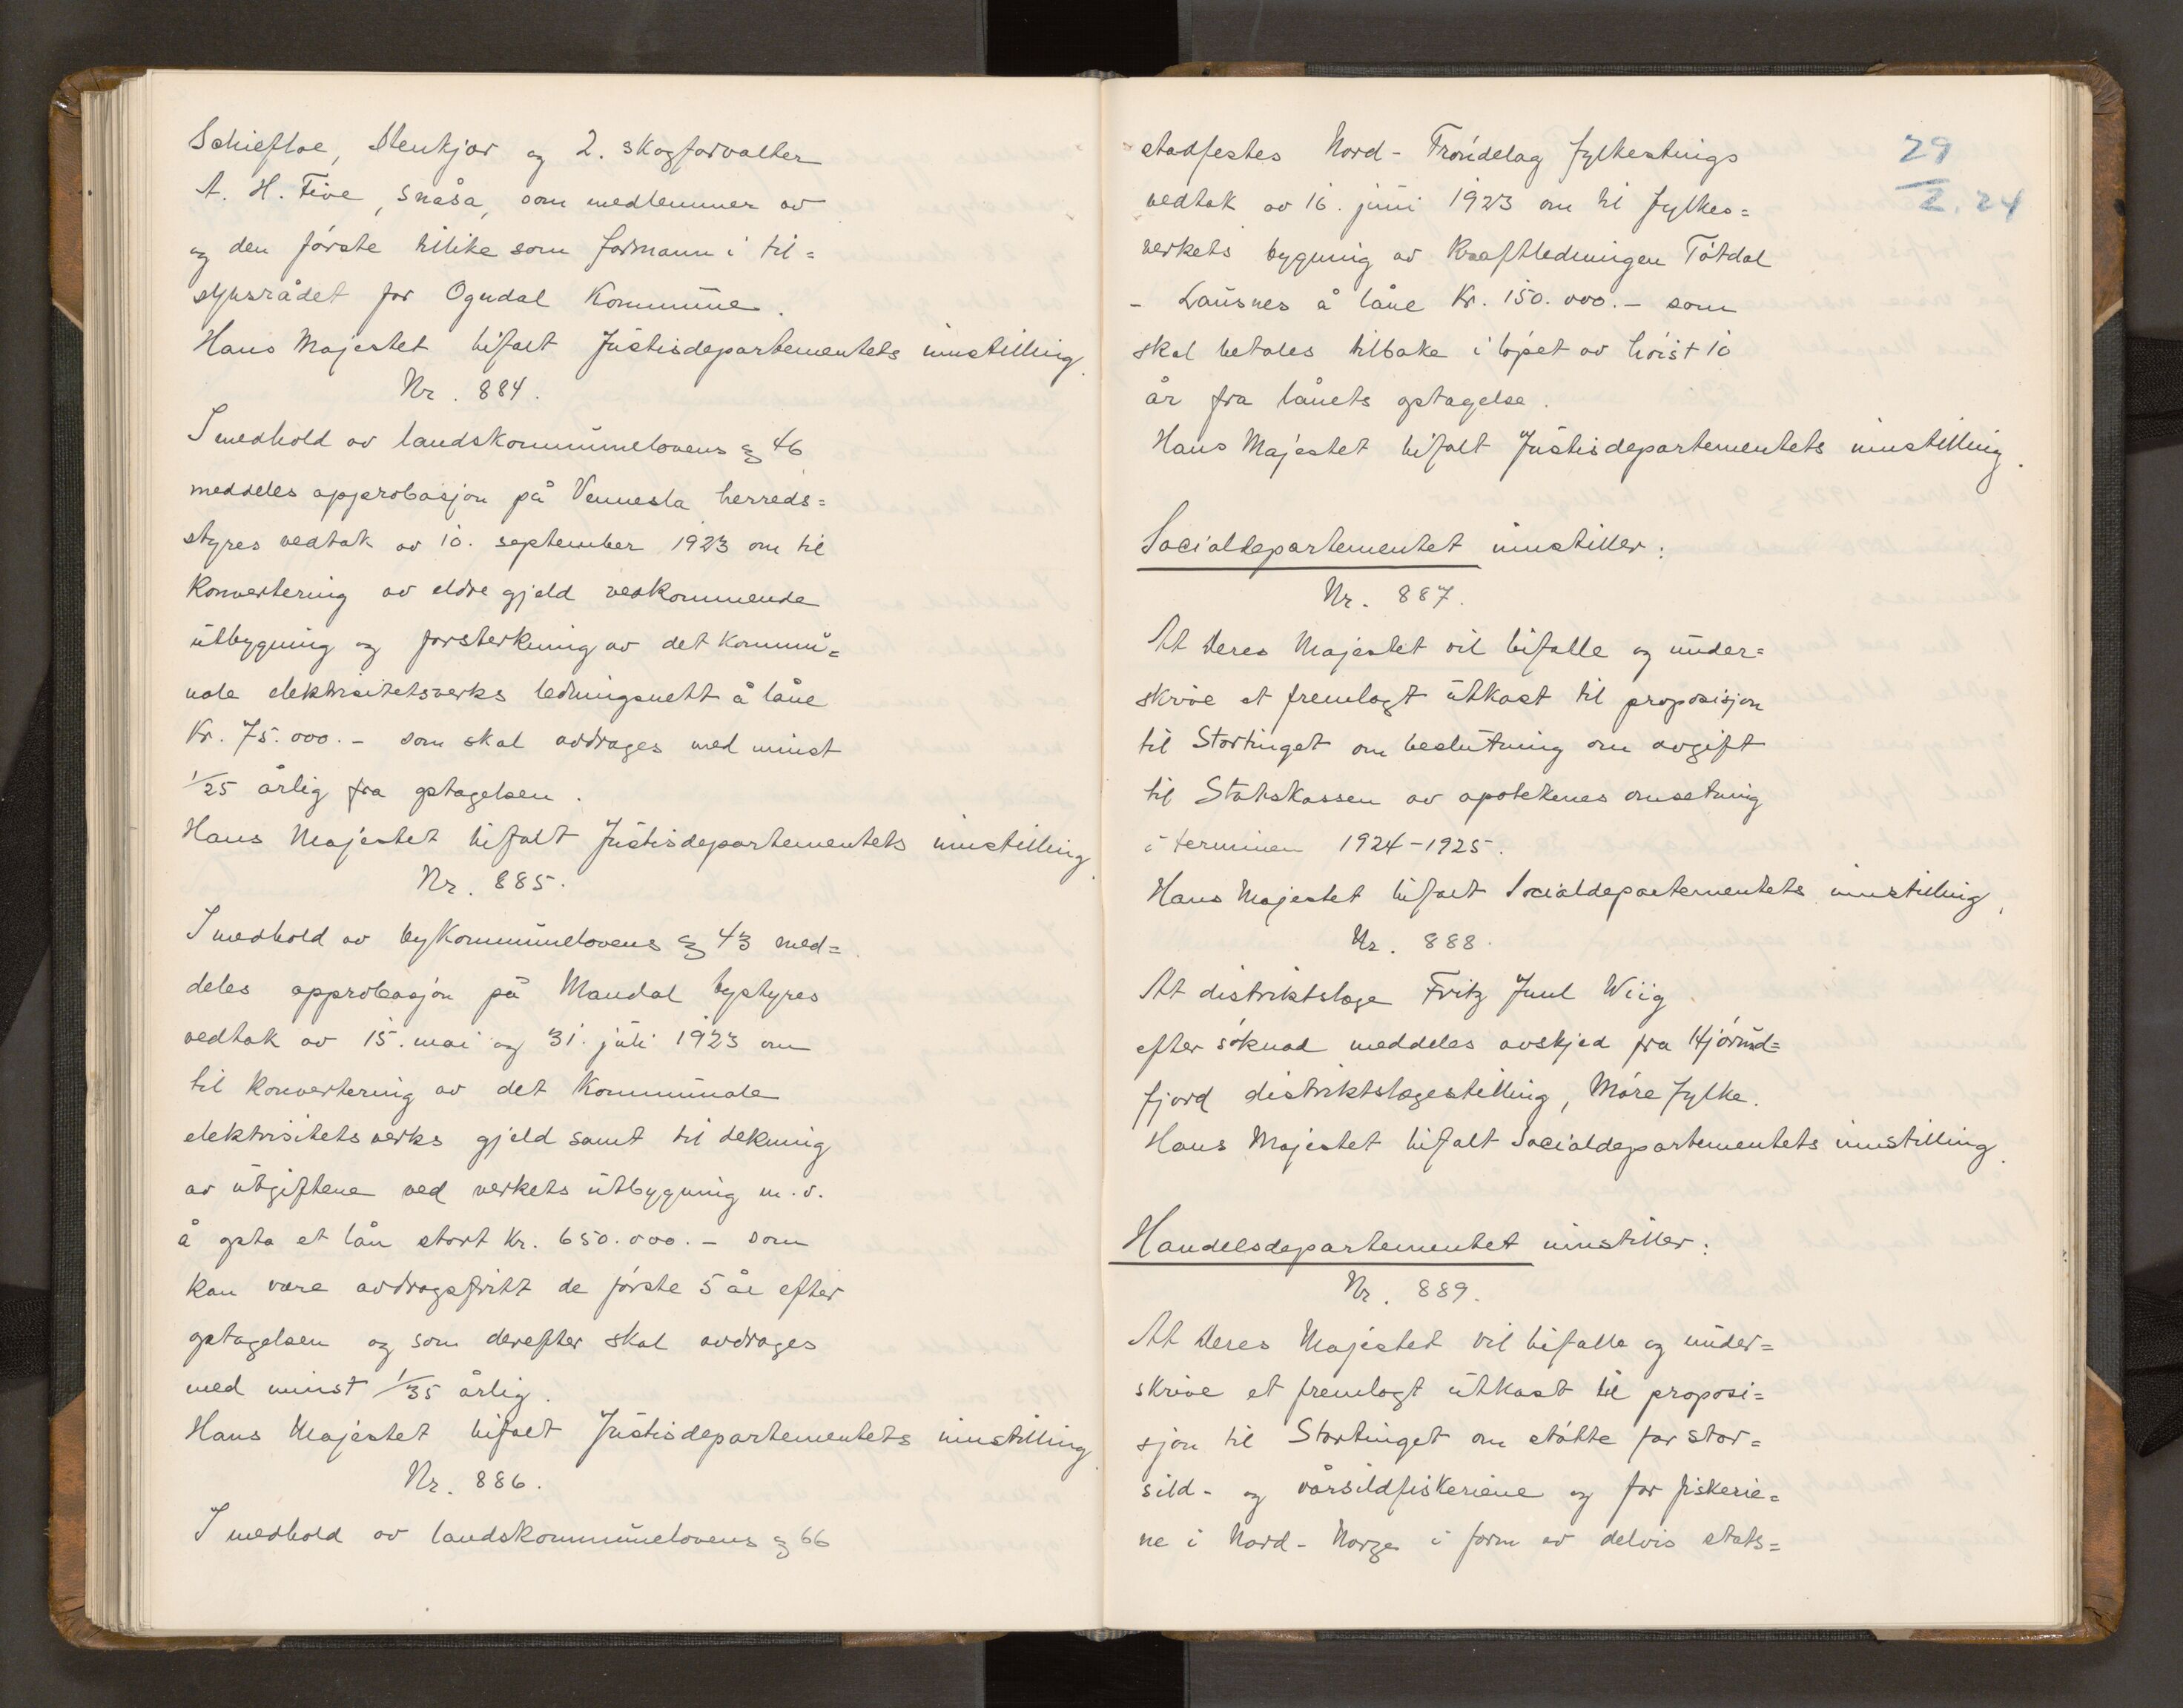 Schiefloe, Stenkjær og 2. skogforvalter
A. H. Five, Snåsa, som medlemmer av
og den første tillike som formann i til=
synsrådet for Ogndal Kommune.
Hans Majestet bifalt Justisdepartementets innstilling.
Nr. 884.
I medhold av landskommunelovens § 46
meddeles approbasjon på Vennesla herreds=
styres vedtak av 10. september 1923 om til
Konvertering av eldre gjeld vedkommende
utbygning og forsterkning av det kommu=
nale elektrisitetsverks ledningsnett å låne
Kr. 75.000.- som skal avdrages med minst
1/25 årlig fra optagelsen.
Hans Majestet bifalt Justisdepartementets innstilling.
Nr. 885.
I medhold av bykommunelovens § 43 med=
deles approbasjon på Mandal bystyres
vedtak av 15. mai og 31. juli 1923 om
til Konvertering av det Kommunale
elektrisitetsverks gjeld samt til dekning
av utgiftene ved verkets utbygning m.v.
å opta et lån stort Kr. 650.000.- som
kan være avdragsfritt de første 5 år efter
optagelsen og som derefter skal avdrages
med minst 1/35 årlig.
Hans Majestet bifalt Justisdepartementets innstilling.
Nr. 886.
I medhold av landskommunelovens § 66
29
2.24
stadfestes Nord-Trøndelag fylkestings
vedtak av 16. juni 1923 om til fylkes=
verkets bygning av Kraftledningen Tøtdal
- Lausnes å låne Kr. 150.000.- som
skal betales tilbake i løpet av høist 10
år fra lånets optagelse.
Hans Majestet bifalt Justisdepartementets innstilling.
Socialdepartementet innstiller:
Nr. 887.
At Deres Majestet vil bifalle og under=
skrive et fremlagt utkast til proposisjon
til Stortinget om beslutning om avgift
til Statskassen av apotekenes omsetning
i terminen 1924-1925.
Hans Majestet bifalt Socialdepartementets innstilling.
Nr. 888.
At distriktslæge Fritz Juul Wiig
efter søknad meddeles avskjed fra Hjørund=
fjord distriktslægestilling, Møre fylke.
Hans Majestet bifalt Socialdepartementets innstilling.
Handelsdepartementet innstiller:
Nr. 889.
At Deres Majestet vil bifalle og under=
skrive et fremlagt utkast til proposi=
sjon til Stortinget om støtte for stor=
sild- og vårsildfiskeriene og for fiskerie=
ne i Nord-Norge i form av delvis stats=